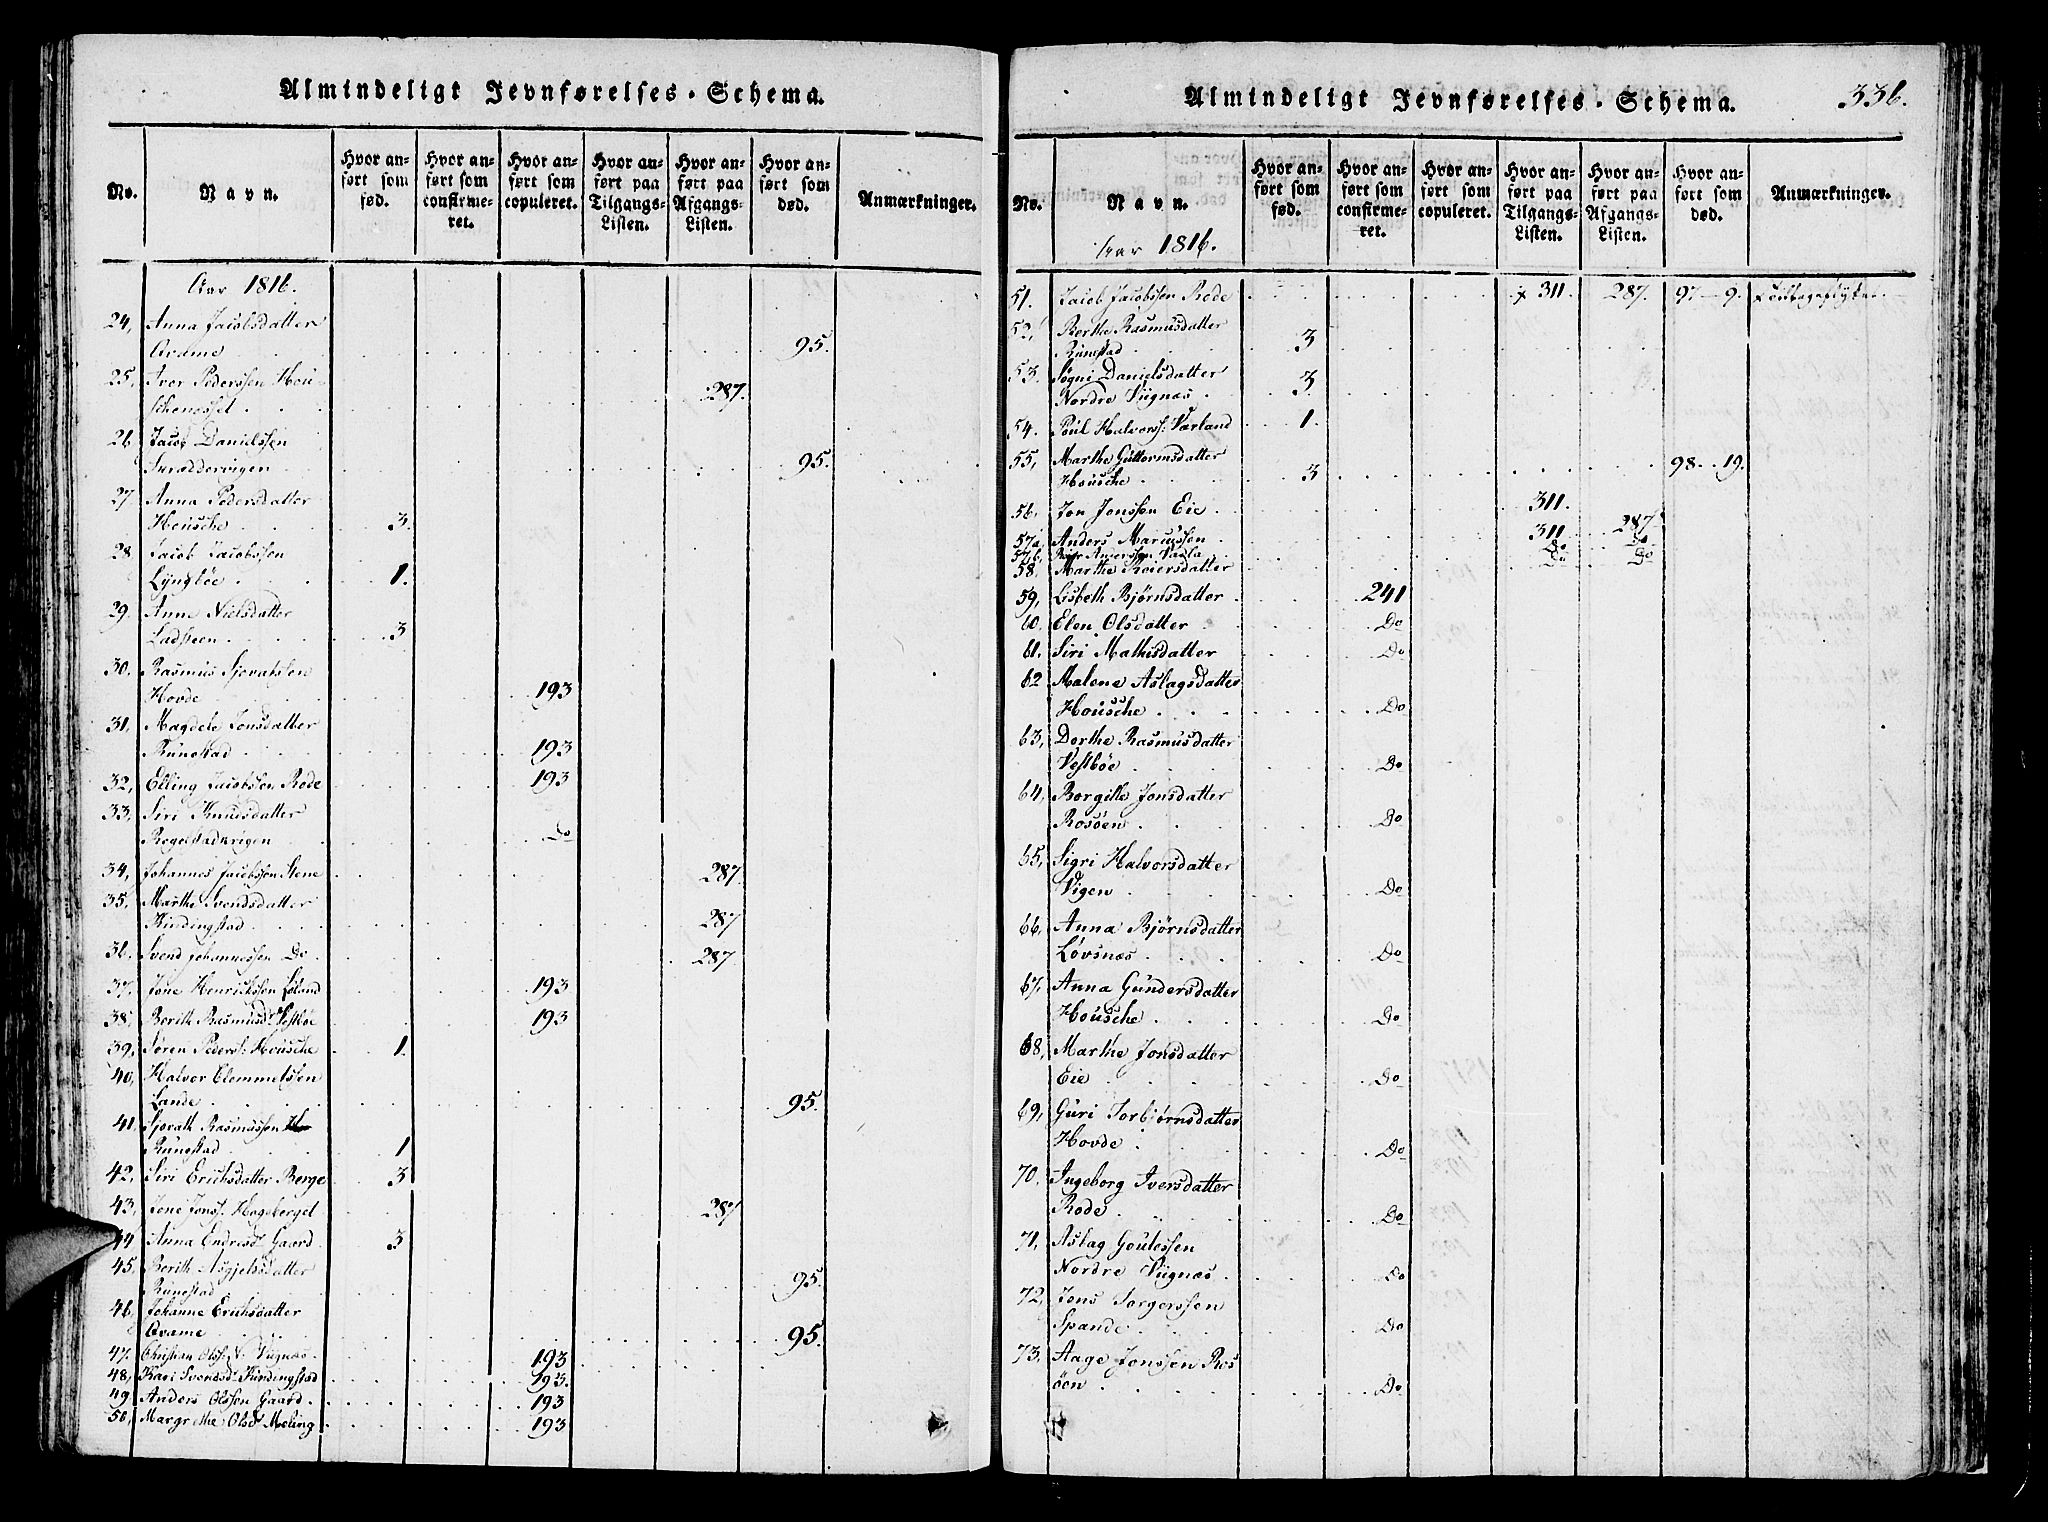 Almindeligt Jevnførelses-Schema.
No. Navn. Hvor anført som fød. Hvor anført som confirmeret. Hvor anført som copuleret. Hvor anført paa Tilgangs-Listen. Hvor anført paa Afgangs-Listen. Hvor anført som død. Anmærkninger.
Aar 1816.
24, Anna Jacobsdatter
Qvame 95.
25, Iver Pederssen Hou-
287.
26 Jacob Danielssen
95.
27 Anna Pedersdatter
Housche 3.
28 Jacob Jacobssen
Lyngbøe 1.
29. Anne Nielsdatter
Ladsteen 3
30. Rasmus Sjovatsen
Hovde 193
31, Magdele Jonsdatter
Runestad 193
32, Elling Jacobssen Rode 193
33, Siri Knudsdatter
Do
34, Johannes Jacobssen Stene 287
35, Marthe Svendsdatter
Kindingstad 287
36. Svend Johannessen Do 287
37, Jone Henrichssen Føland 193
38, Berith Rasmusd: Vestbøe 193
39, Søren Peders: Housche 1.
40, Halvor Clemmetssen
Lande 95.
41. Sjovath Rasmussen
Runestad 1
42, Siri Erichsdatter Berge 3
43, Jone Jonss: Hagebergel 287
44 Anna Endresd: Gaard 3
45. Berith Asgjelsdatter
Runestad 95.
46. Johanne Erichsdatter
Qvame 95.
47. Christian Olss: Viignæs 193
48, Kari Svendsd: Kindingstad 193.
49 Anders Olssen Gaard 193
50, Margrethe Olsd: Meling 193
Almindeligt Jevnførelses-Schema. 336.
No. Navn. Hvor anført som fød. Hvor anført som confirmeret. Hvor anført som copuleret. Hvor anført paa Tilgangs-Listen. Hvor anført paa Afgangs-Listen. Hvor anført som død. Anmærkninger.
Aar 1816.
51. Jacob Jacobssen Rode 311. 287. 97-9.
52, Berthe Rasmusdatter
Runestad 3
53. Søgni Danielsdatter
Nordre Viignæs 3
54. Poul Halvorss: Varland 1.
55, Marthe Guttormsdatter
Housche 3 98..19.
56. Jon Jonssen Eie 311.
57a Anders Mariussen 311 287
57b. Anderssen Vadla Do Do
58, Marthe Reiersdatter Do Do
59, Lisbeth Bjørnsdatter 241
60, Elen Olsdatter Do
61. Siri Mathisdatter Do
62 Malene Aslagsdatter
Housche Do
63, Dorthe Rasmusdatter
Vestbøe Do
64, Borgille Jonsdatter
Rosøen Do
65, Sigri Halvorsdatter
Vigen Do
66, Anna Bjørnsdatter
Løvsnæs Do
67, Anna Gundersdatter
Housche Do
68, Marthe Jonsdatter
Eie Do
69, Guri Torbjørnsdatter
Hovde Do
70, Ingeborg Iversdatter
Rode Do
71, Aslag Goutessen
Nordre Viignæs Do
72, Jens Torgerssen
Spande Do
73, Aage Jonssen Ros
øen Do